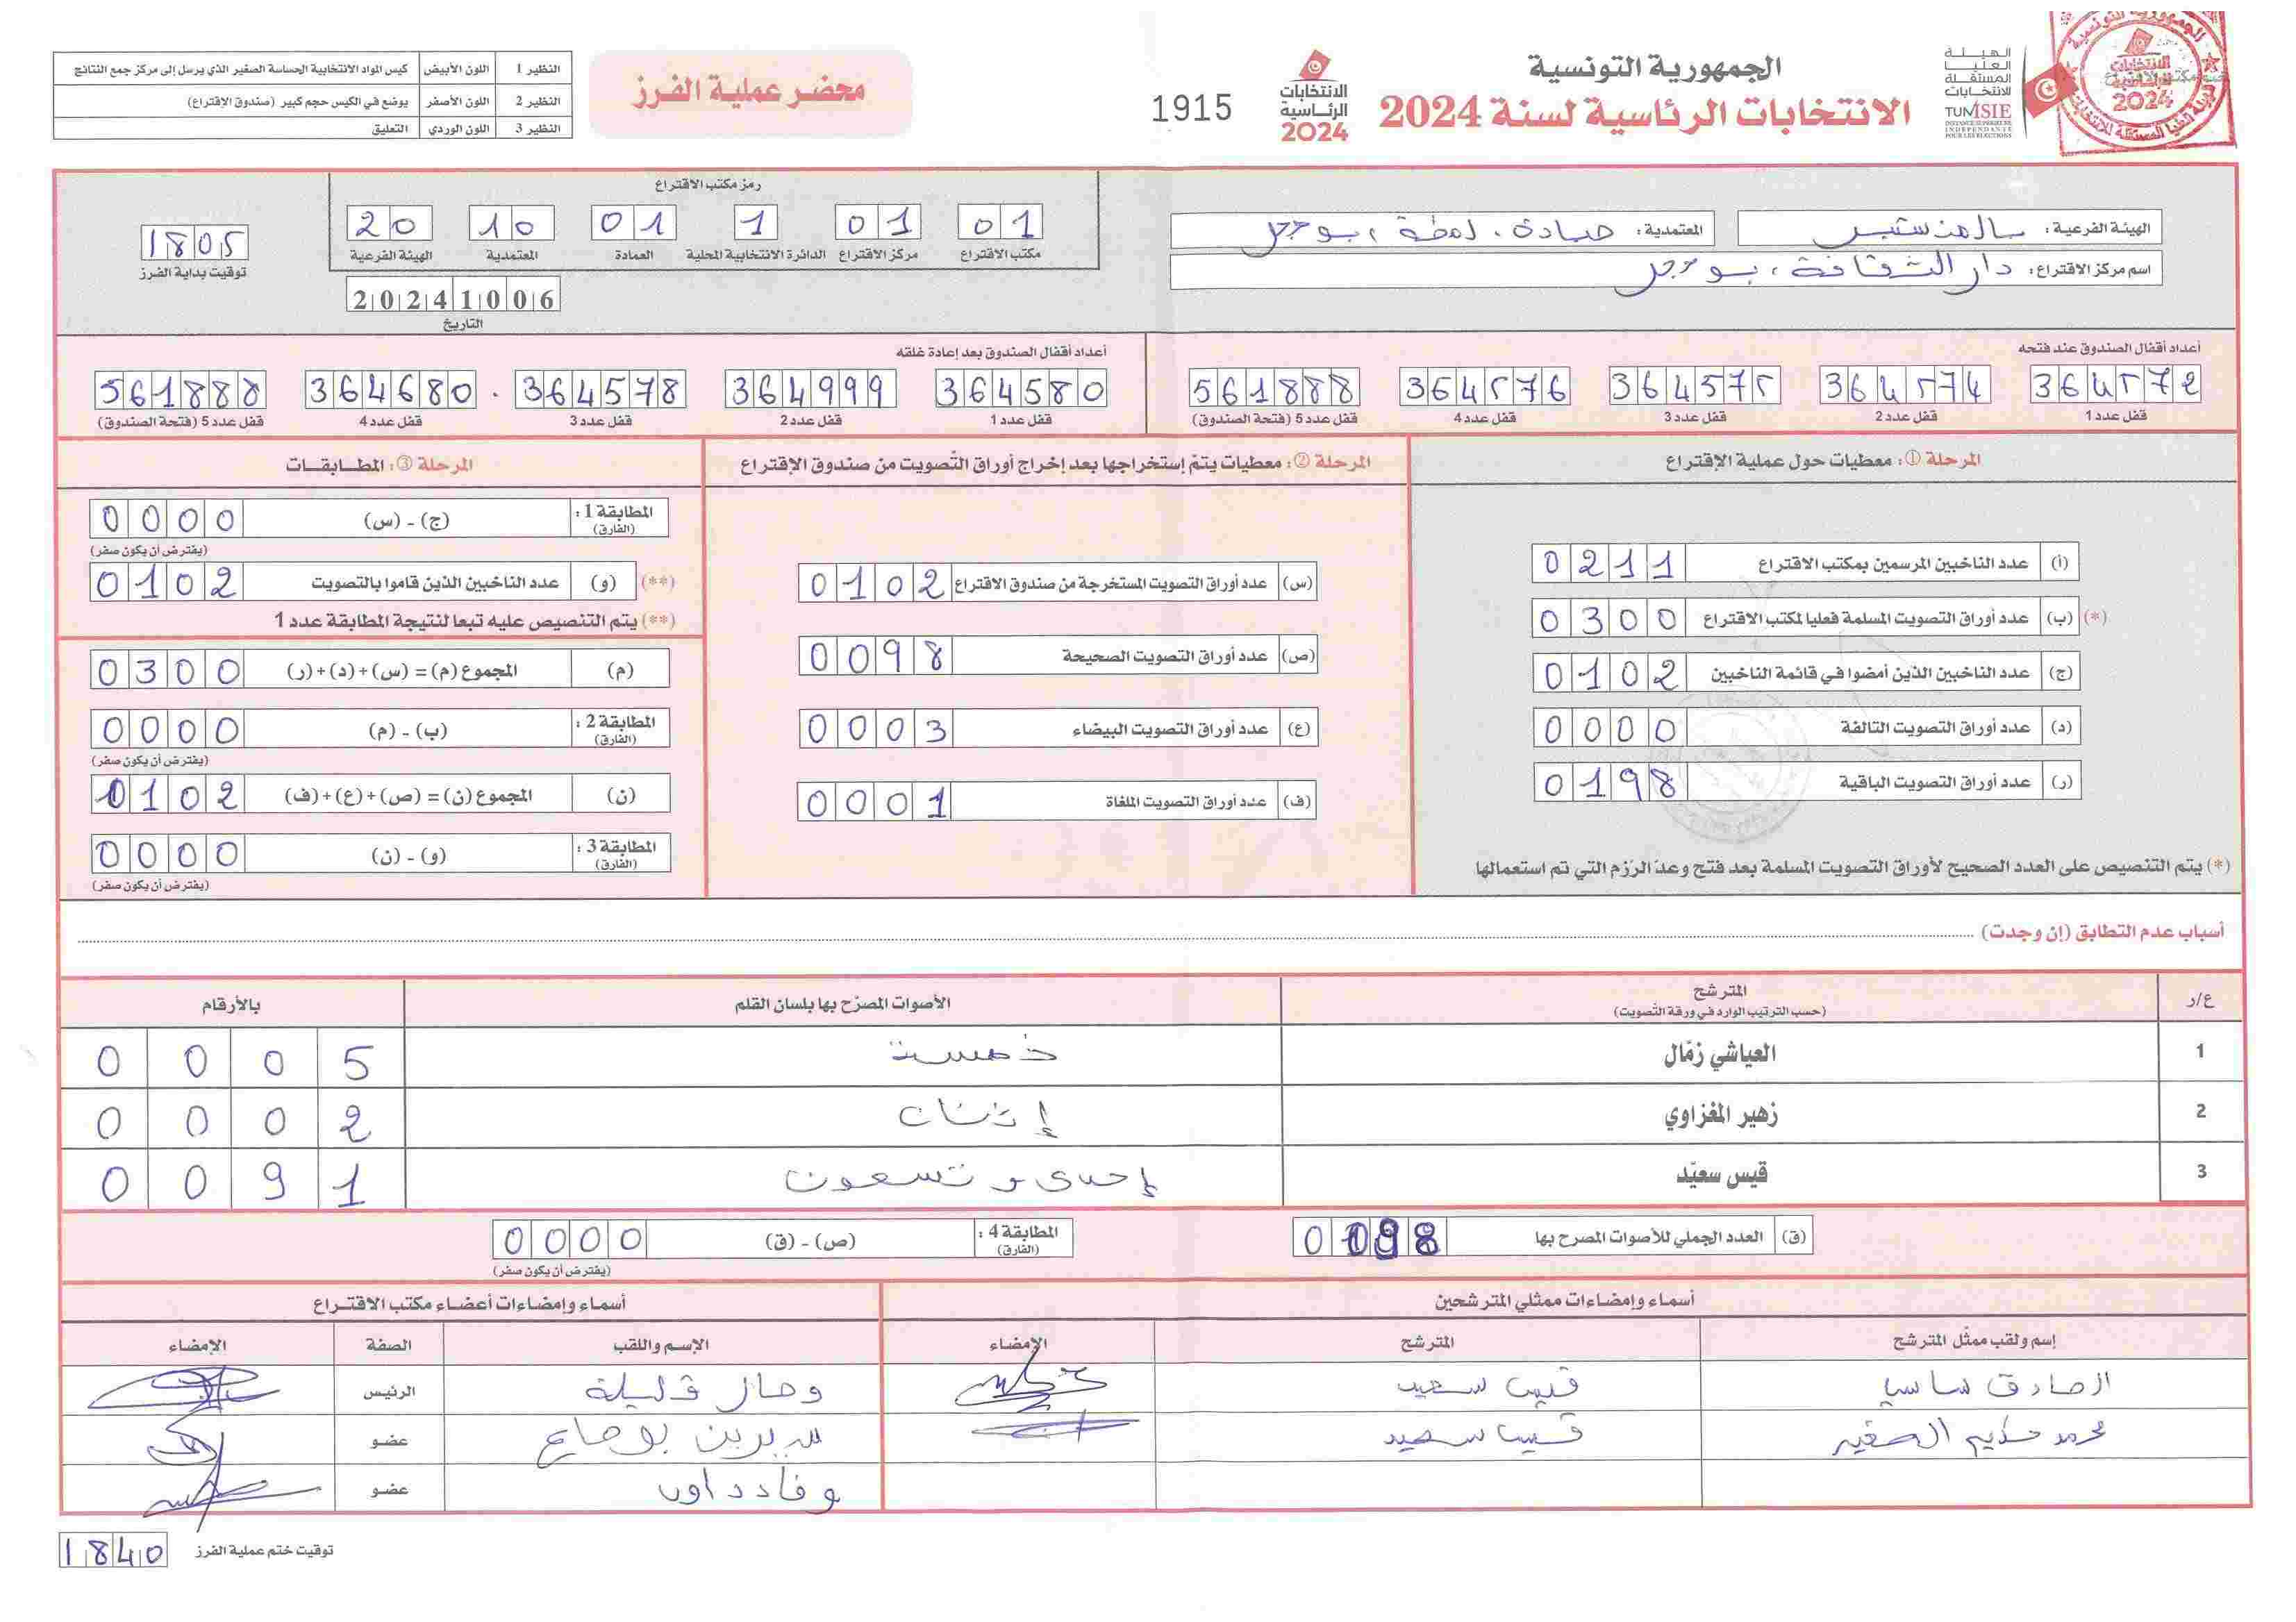 الجمهورية التونسية
الانتخابات الرئاسية لسنة 2024
الهيئة العليا المستقلة للانتخابات
TUNISIE
INSTANCE SUPÉRIEURE INDÉPENDANTE POUR LES ÉLECTIONS
الانتخابات الرئاسية 2024
1915
محضر عملية الفرز
النظير 1 اللون الأبيض كيس المواد الانتخابية الحساسة الصغير الذي يرسل إلى مركز جمع النتائج
النظير 2 اللون الأصفر يوضع في الكيس حجم كبير (صندوق الإقتراع)
النظير 3 اللون الوردي التعليق
الهيئة الفرعية: المنستير
المعتمدية: صيادة، لمطة، بوحجر
اسم مركز الاقتراع: دار الثقافة، بوحجر
رمز مكتب الاقتراع
01 مكتب الاقتراع
01 مركز الاقتراع
1 الدائرة الانتخابية المحلية
01 العمادة
10 المعتمدية
20 الهيئة الفرعية
20241006
التاريخ
1805
توقيت بداية الفرز
أعداد أقفال الصندوق عند فتحه
364572 قفل عدد 1
364574 قفل عدد 2
364575 قفل عدد 3
364576 قفل عدد 4
561888 قفل عدد 5 (فتحة الصندوق)
أعداد أقفال الصندوق بعد إعادة غلقه
364580 قفل عدد 1
364999 قفل عدد 2
364578 قفل عدد 3
364680 قفل عدد 4
561888 قفل عدد 5 (فتحة الصندوق)
المرحلة ①: معطيات حول عملية الإقتراع
(أ) عدد الناخبين المرسمين بمكتب الاقتراع 0211
(*) (ب) عدد أوراق التصويت المسلمة فعليا لمكتب الاقتراع 0300
(ج) عدد الناخبين الذين أمضوا في قائمة الناخبين 0102
(د) عدد أوراق التصويت التالفة 0000
(ر) عدد أوراق التصويت الباقية 0198
(*) يتم التنصيص على العدد الصحيح لأوراق التصويت المسلمة بعد فتح وعدّ الرّزم التي تم استعمالها
المرحلة ②: معطيات يتمّ إستخراجها بعد إخراج أوراق التّصويت من صندوق الإقتراع
(س) عدد أوراق التصويت المستخرجة من صندوق الاقتراع 0102
(ص) عدد أوراق التصويت الصحيحة 0098
(ع) عدد أوراق التصويت البيضاء 0003
(ف) عدد أوراق التصويت الملغاة 0001
المرحلة ③: المطابقات
المطابقة 1: (الفارق) (ج) - (س) 0000
(يفترض أن يكون صفر)
(**) (و) عدد الناخبين الذين قاموا بالتصويت 0102
(**) يتم التنصيص عليه تبعا لنتيجة المطابقة عدد 1
(م) المجموع (م) = (س)+(د)+(ر) 0300
المطابقة 2: (الفارق) (ب) - (م) 0000
(يفترض أن يكون صفر)
(ن) المجموع (ن) = (ص)+(ع)+(ف) 0102
المطابقة 3: (الفارق) (و) - (ن) 0000
(يفترض أن يكون صفر)
أسباب عدم التطابق (إن وجدت)
ع/ر المترشح (حسب الترتيب الوارد في ورقة التّصويت) الأصوات المصرّح بها بلسان القلم بالأرقام
1 العياشي زمّال خمسة 0005
2 زهير المغزاوي إثنان 0002
3 قيس سعيّد إحدى وتسعون 0091
(ق) العدد الجملي للأصوات المصرح بها 0098
المطابقة 4: (الفارق) (ص) - (ق) 0000
(يفترض أن يكون صفر)
أسماء وإمضاءات ممثلي المترشحين
إسم ولقب ممثّل المترشح المترشح الإمضاء
الصادق ساسي قيس سعيد
محمد حكيم الصغير قيس سعيد
أسماء وإمضاءات أعضاء مكتب الاقتراع
الإسم واللقب الصفة الإمضاء
الرئيس
عضو
عضو
توقيت ختم عملية الفرز 1840